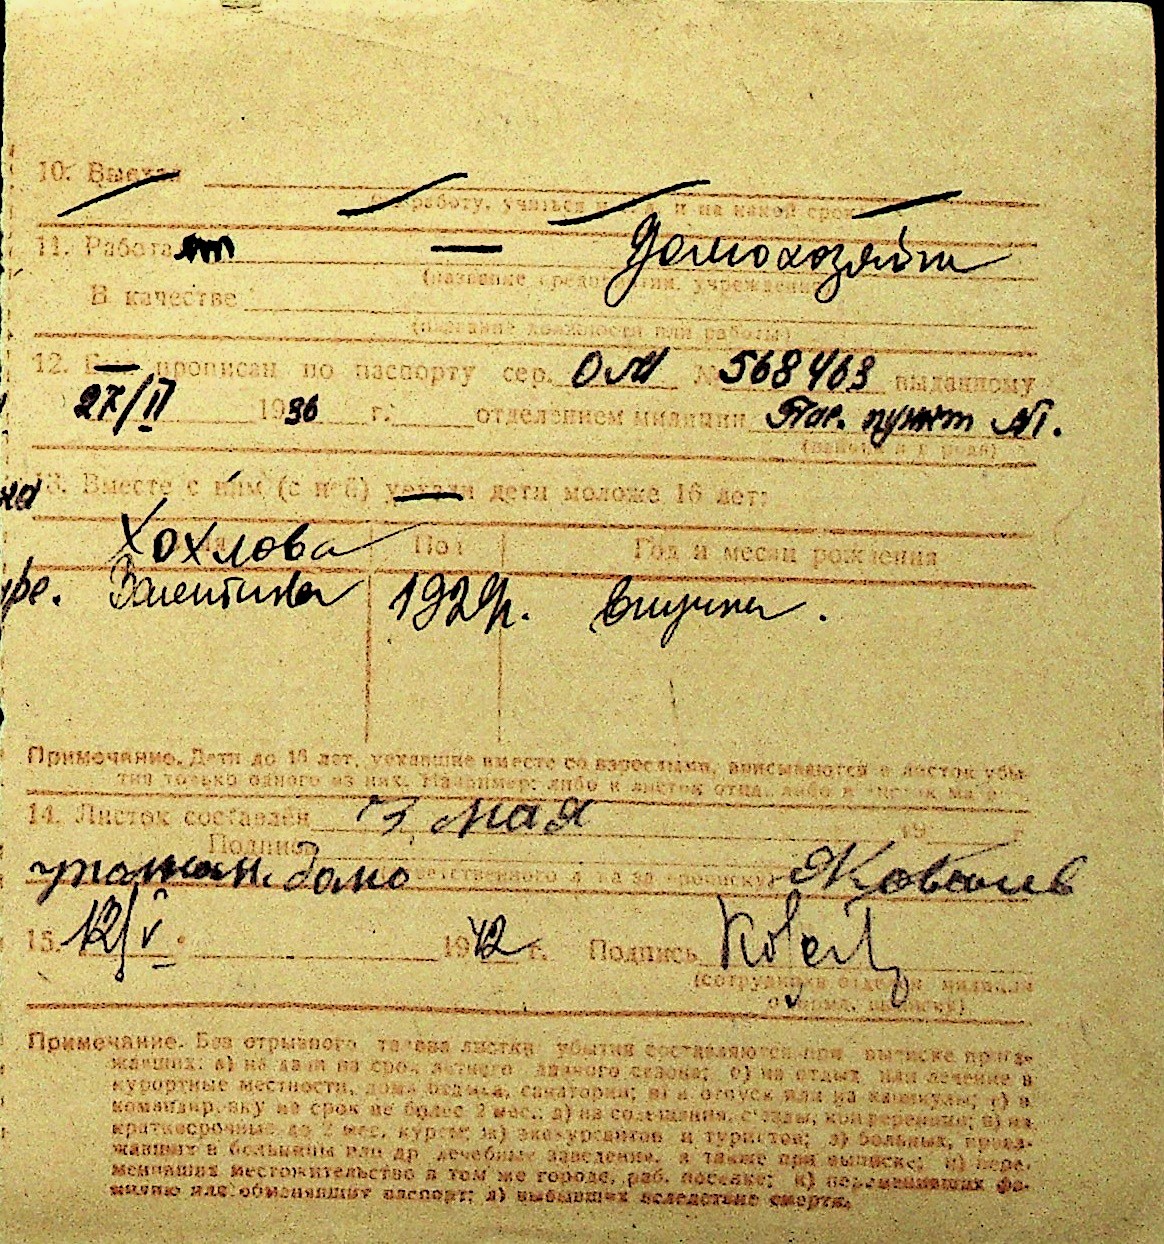 10. Выехал
(на работу, учиться и т. д. и на какой срок)
11. Работает — Домохозяйка
(название предприятия, учреждения)
В качестве
(название должности или работы)
12. прописан по паспорту сер. ОМ № 568463 выданному
27/II 1936 г. отделением милиции Пас. пункт №1.
13. Вместе с ним (с ней) уехали дети моложе 16 лет:
Хохлова Пол Год и месяц рождения
Валентина 1929г. внучка.
Примечание. Дети до 16 лет, уехавшие вместе со взрослыми, вписываются в листок убы-
тия только одного из них. Например: либо в листок отца, либо в листок матери.
14. Листок составлен 7 мая 19 г.
Подпись
управ. домо Ковалев
(ответственного лица за прописку)
15. 12/V 1942 г. Подпись
(сотрудника отделен. милиции
оформл. прописку)
Примечание. Без отрывного талона листки убытия составляются при выпискеприез-
жавших: а) на дачи на срок летнего дачного сезона; б) на отдых или лечение в
курортные местности, дома отдыха, санатории; в) в отпуск или на каникулы; г) в
командировку на срок не более 2 мес.; д) на совещания, съезды, конференции; е) на
краткосрочные до 2 мес. курсы; ж) экскурсантов и туристов; з) больных, приез-
жавших в больницы или др. лечебные заведения, а также при выписке; и) пере-
менивших местожительство в том же городе, раб. поселке; к) переменивших фа-
милию или обменявших паспорт; л) выбывших вследствие смерти.